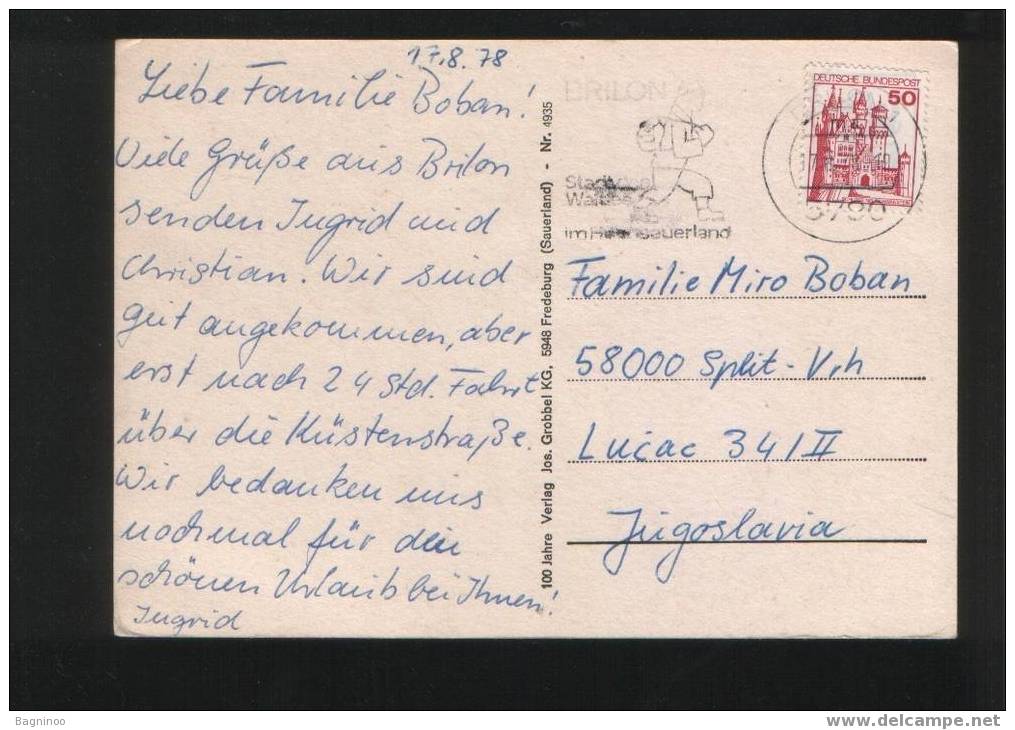 17.8.78
Liebe Familie Boban!
Viele Grüße aus Brilon
senden Ingrid und
Christian. Wir sind
gut angekommen, aber
erst nach 24 Std. Fahrt
über die Küstenstraße.
Wir bedanken uns
nochmal für den
schönen Urlaub bei Ihnen!
Ingrid
100 Jahre Verlag Jos. Grobbel KG, 5948 Fredeburg (Sauerland) - Nr. 4935
BRILON
Stadt des
im Hochsauerland
DEUTSCHE BUNDESPOST
50
5790
Familie Miro Boban
58000 Split-Vrh
Lučac 34/II
Jugoslavia
Bagninoo
www.delcampe.net